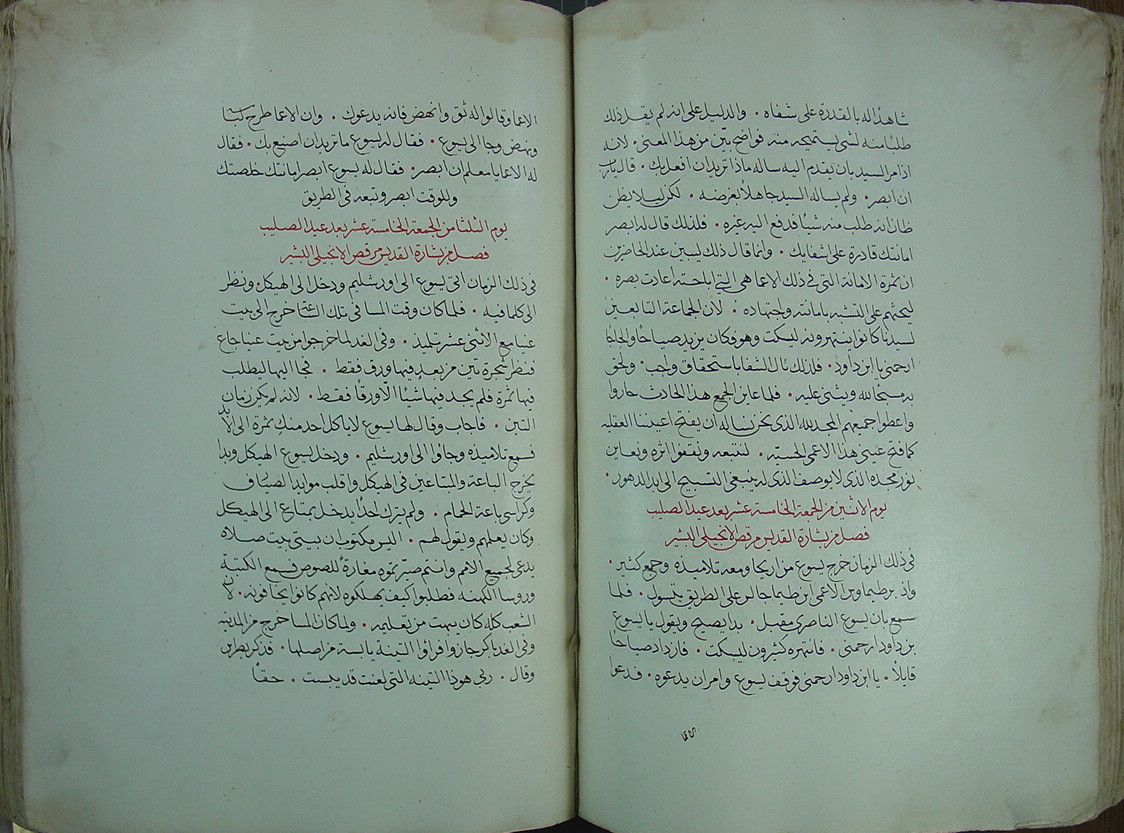 شاهدًا له بالقدرة على شفاه · والدليل على انه لم يقل ذلك
طلبًا منه لشى يستميحه منه فواضح بيّن من هذا المعنى · لانه
اذ امر السيد بان يقدم اليه ساله ماذا تريد ان افعل بك · قال يارب
ان ابصر · ولم يساله السيد جاهلاً بغرضه · لكن ليلا يظن
ظان انه طلب منه شيًا فدفع اليه غيره · فلذلك قال له ابصر
امانتك قادرة على شفايك · وانما قال ذلك ليبين عند الحاضرين
ان ثمرة الامانة التى فى ذلك الاعما هى التى بلحته اعادت بصره ·
ليحثهم على التشبه بامانته واجتهاده · لان الجماعة التابعين
لسيدنا كانوا ينتهرونه ليسكت وهو فكان يزيد صياحًا والحاحًا
ارحمنى يا ابن داود · فلذلك نال الشفا باستحقاق وواجب · ولحق
به مسبحًا لله ويثنى عليه · فلما عاين الجمع هذا الحادث حاروا
واعطوا جميعهم المجد لله الذى نحن نساله ان يفتح اعيننا العقليه
كما فتح عينى هذا الاعمى الحسيّه · لنتبعه ونقفوا اثره ونعاين
نور مجده الذى لا يوصف الذى له ينبغى التسبيح الى ابد الدهور ·
يوم الاثنين من الجمعة الخامسة عشر بعد عيد الصليب
فصل من بشارة القديس مرقص الانجيلى البشير
فى ذلك الزمان خرج يسوع من اريحا ومعه تلاميذه وجمع كثير ·
واذ برطيماوس الاعمى ابن طيما جالس على الطريق يتسول · فلما
سمع بان يسوع الناصرى مقبل · بدا يصيح ويقول يا يسوع
بن داود ارحمنى · فانتهره كثيرون ليسكت · فازداد صياحًا
قايلاً · يا ابن داود ارحمنى فوقف يسوع وامر ان يدعوه · فدعوا
الاعما وقالوا له ثق وانهض فانه يدعوك · وان الاعما طرح لباسه
ونهض وجا الى يسوع · فقال له يسوع ما تريد ان اصنع بك · فقال
له الاعما يا معلم ان ابصر · فقال له يسوع ابصر امانتك خلصتك
وللوقت ابصر وتبعه فى الطريق
يوم الثلثا من الجمعة الخامسة عشر بعد عيد الصليب
فصل من بشارة القديس مرقص الانجيلى البشير
فى ذلك الزمان اتى يسوع الى اورشليم ودخل الى الهيكل ونظر
الى كلما فيه · فلما كان وقت المسا فى تلك الساعة خرج الى بيت
عنيا مع الاثنى عشر تلميذ · وفى الغد لما خرجوا من بيت عنيا جاع
فنظر شجرة تين من بعد فيها ورق فقط · فجا اليها ليطلب
فيها ثمرة فلم يجد فيها شيئًا الّا ورقًا فقط · لانه لم يكن زمان
التين · فاجاب وقال لها يسوع لا ياكل احد منك ثمرة الى الابد
فسمع تلاميذه وجاوا الى اورشليم · ودخل يسوع الهيكل وبدا
يخرج الباعة والمبتاعين فى الهيكل واقلب موايد الصيارف
وكراسى باعة الحمام · ولم يترك احدًا يدخل بمتاع الى الهيكل
وكان يعلمهم ويقول لهم · اليس مكتوب ان بيتى بيت صلاة
يدعى لجميع الامم وانتم صيرتموه مغارة للصوص فسمع الكتبة
وروسا الكهنه فطلبوا كيف يهلكوه لانهم كانوا يخافونه · لان
الشعب كله كان يبهت من تعليمه · ولما كان المسا خرج من المدينه
وفى الغد باكر جازوا فراوا التينة يابسة من اصلها · فذكر بطرس
وقال · ربى هوذا التينه التى لعنت قد يبست · حقاً